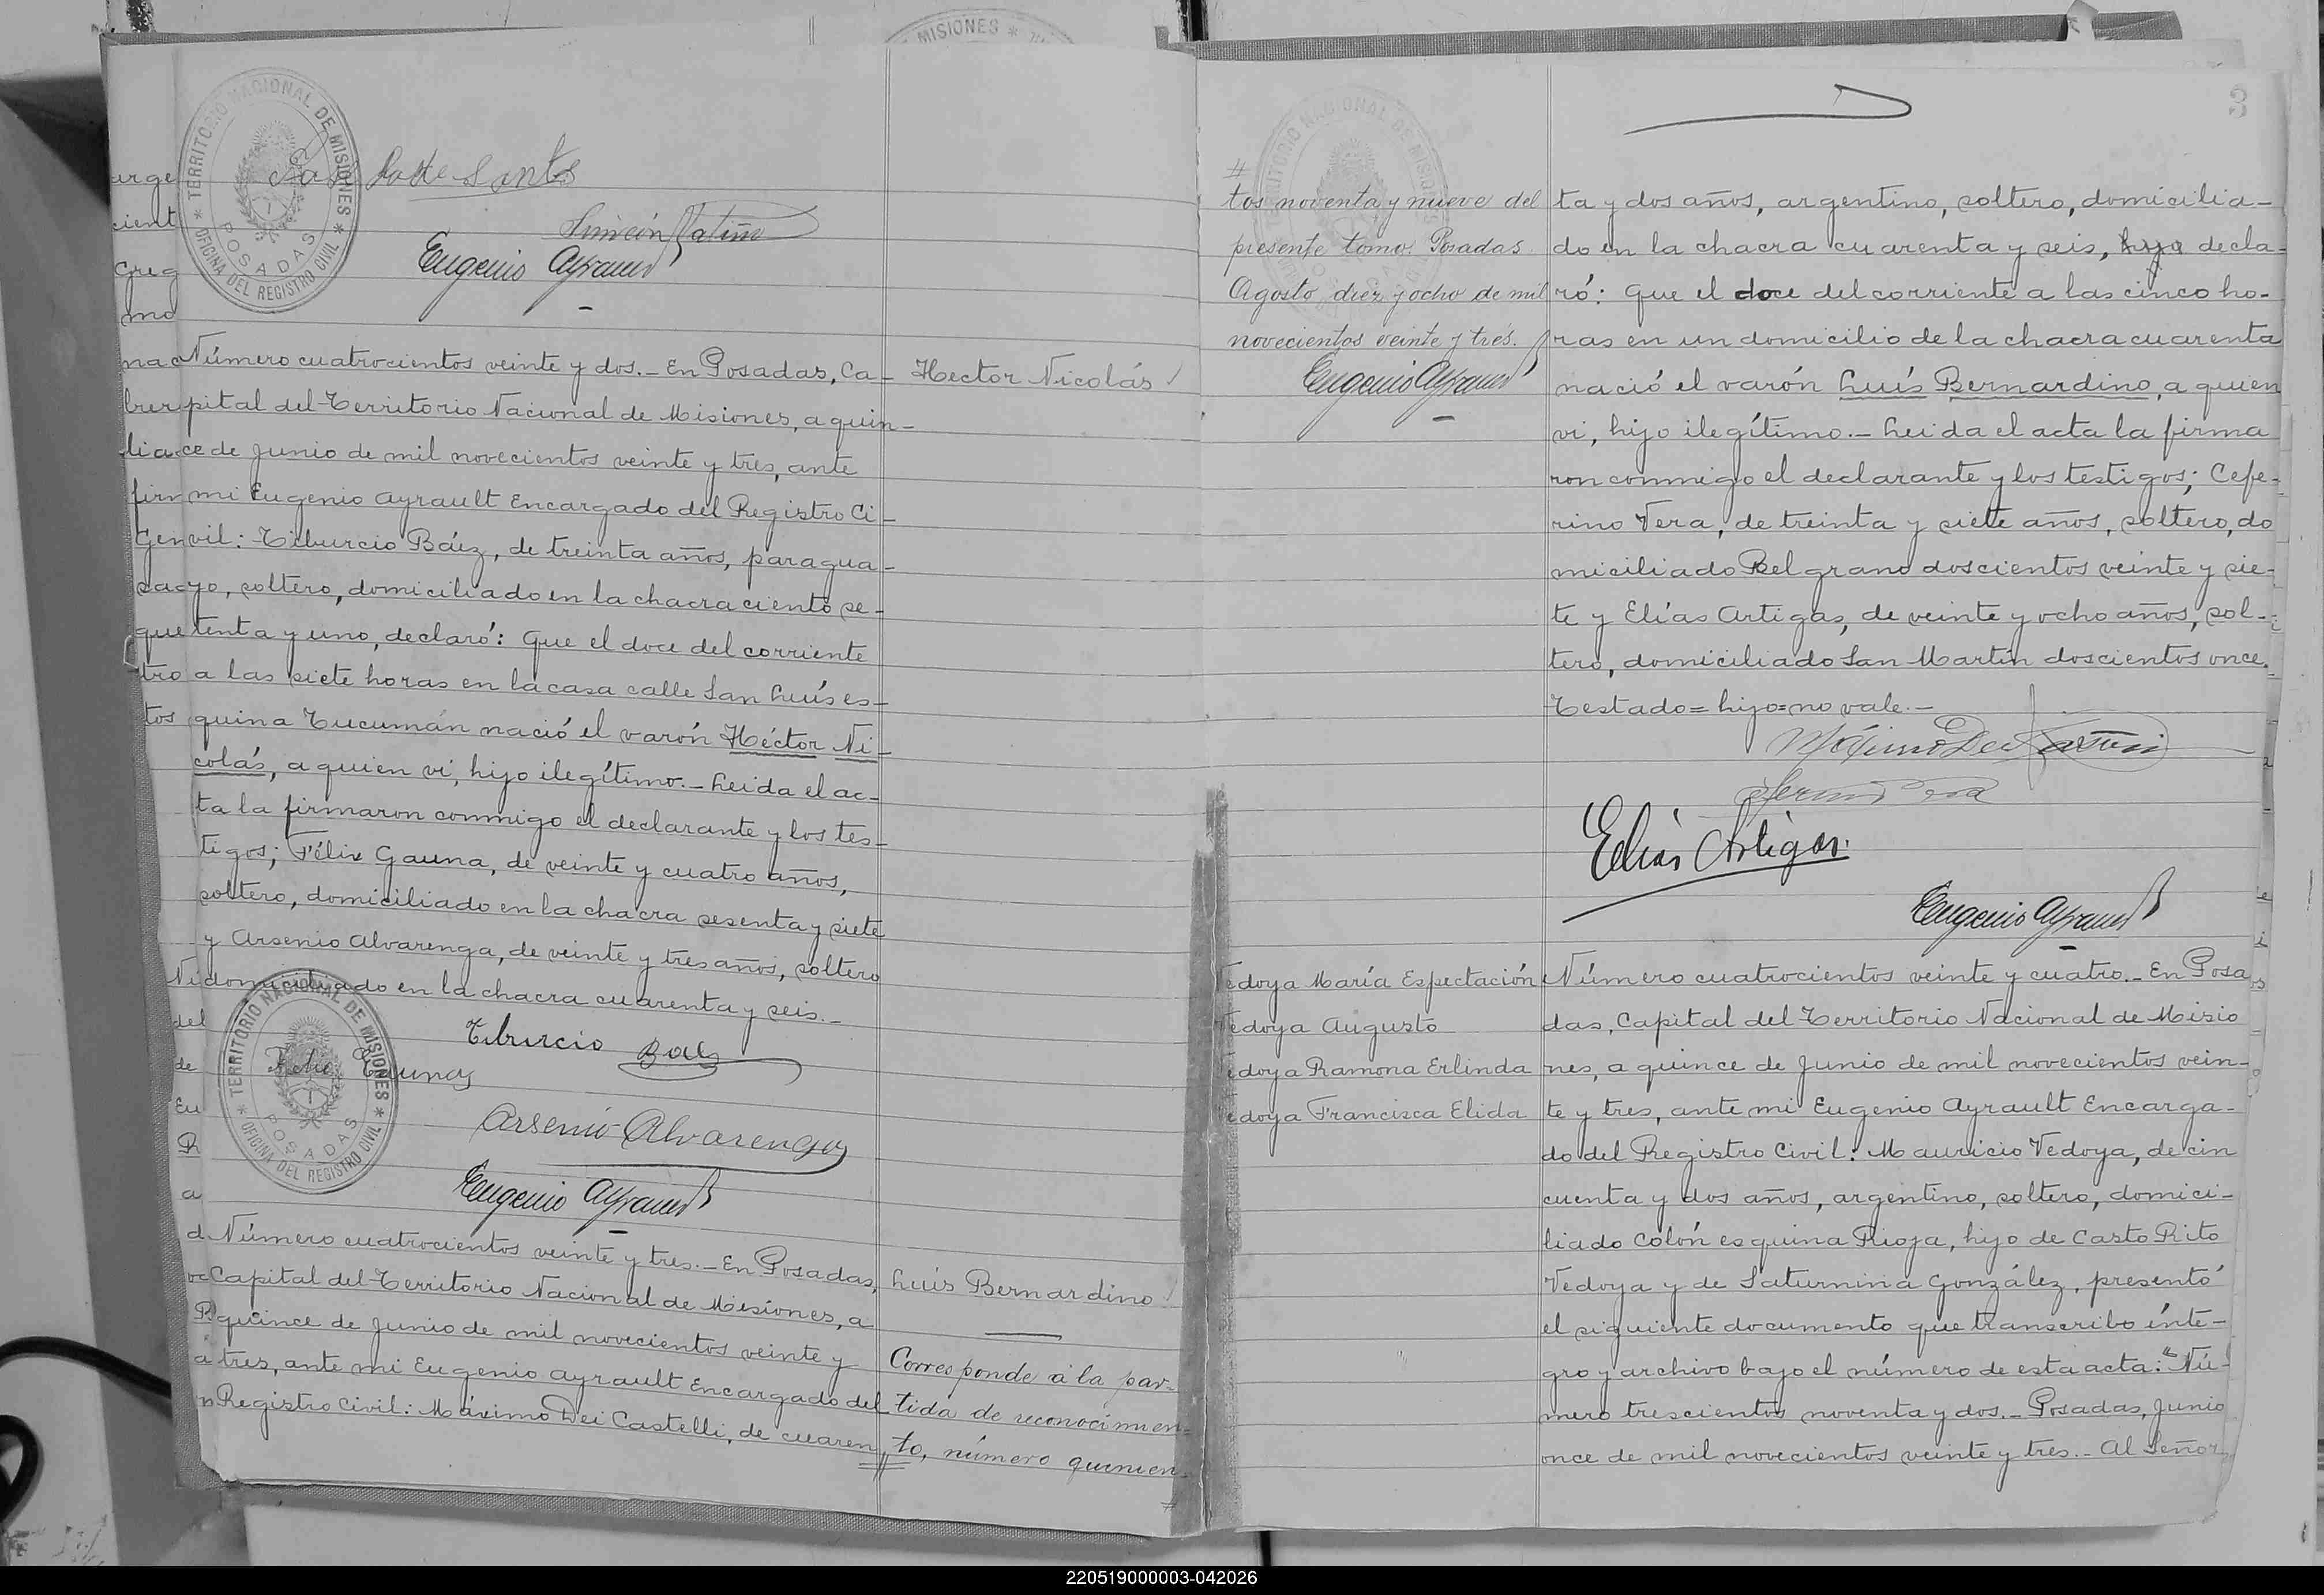 MISIONES *
TERRITORIO NACIONAL DE MISIONES * OFICINA DEL REGISTRO CIVIL *
POSADAS
de Santos
Eugenio Ayrault
arge
cient
Greg
mo
nac
brer
lia
firm
Gen
sa
que
tro
tos
Número cuatrocientos veinte y dos.- En Posadas, Ca-
pital del Territorio Nacional de Misiones, a quin-
ce de Junio de mil novecientos veinte y tres, ante
mi Eugenio Ayrault Encargado del Registro Ci-
vil: Tiburcio Báez, de treinta años, paragua-
yo, soltero, domiciliado en la chacra ciento se-
tenta y uno, declaró: Que el doce del corriente
a las siete horas en la casa calle San Luís es-
quina Tucumán nació el varón Héctor Ni-
colás, a quien vi, hijo ilegítimo.- Leida el ac-
ta la firmaron conmigo el declarante y los tes-
tigos; Félix Gauna, de veinte y cuatro años,
soltero, domiciliado en la chacra sesenta y siete
y Arsenio Alvarenga, de veinte y tres años, soltero
domiciliado en la chacra cuarenta y seis.-
Hector Nicolás
Ni
del
de
Eu
R
a
d
TERRITORIO NACIONAL DE MISIONES * OFICINA DEL REGISTRO CIVIL *
POSADAS
Tiburcio Báez
Felix Gauna
Arsenio Alvarenga
Eugenio Ayrault
Número cuatrocientos veinte y tres.- En Posadas,
Capital del Territorio Nacional de Misiones, a
quince de Junio de mil novecientos veinte y
tres, ante mi Eugenio Ayrault Encargado del
Registro Civil: Máximo Dei Castelli, de cuaren
Luís Bernardino
Corresponde á la par-
tida de reconocimien-
to, número quinien-
3
TERRITORIO NACIONAL DE MISIONES
tos noventa y nueve del
presente tomo. Posadas
Agosto diez y ocho de mil
novecientos veinte y tres.
Eugenio Ayrault
ta y dos años, argentino, soltero, domicilia-
do en la chacra cuarenta y seis, hijo decla-
ró: Que el doce del corriente a las cinco ho-
ras en un domicilio de la chacra cuarenta
nació el varón Luís Bernardino, a quien
vi, hijo ilegítimo.- Leida el acta la firma
ron conmigo el declarante y los testigos; Cefe-
rino Vera, de treinta y siete años, soltero, do
miciliado Belgrano doscientos veinte y sie-
te y Elías Artigas, de veinte y ocho años, sol-
tero, domiciliado San Martín doscientos once.
Testado=hijo=no vale.-
Máximo Dei Castelli
Elías Artigas.
Eugenio Ayrault
Vedoya María Espectación
Vedoya Augusto
Vedoya Ramona Erlinda
Vedoya Francisca Elida
Número cuatrocientos veinte y cuatro.- En Posa
das, Capital del Territorio Nacional de Misio
nes, a quince de Junio de mil novecientos vein-
te y tres, ante mi Eugenio Ayrault Encarga-
do del Registro Civil: Mauricio Vedoya, de cin
cuenta y dos años, argentino, soltero, domici-
liado Colón esquina Rioja, hijo de Casto Rito
Vedoya y de Saturnina González, presentó
el siguiente documento que transcribo ínte-
gro y archivo bajo el número de esta acta: "Nú-
mero trescientos noventa y dos.- Posadas, Junio
once de mil novecientos veinte y tres.- Al Señor
220519000003-042026